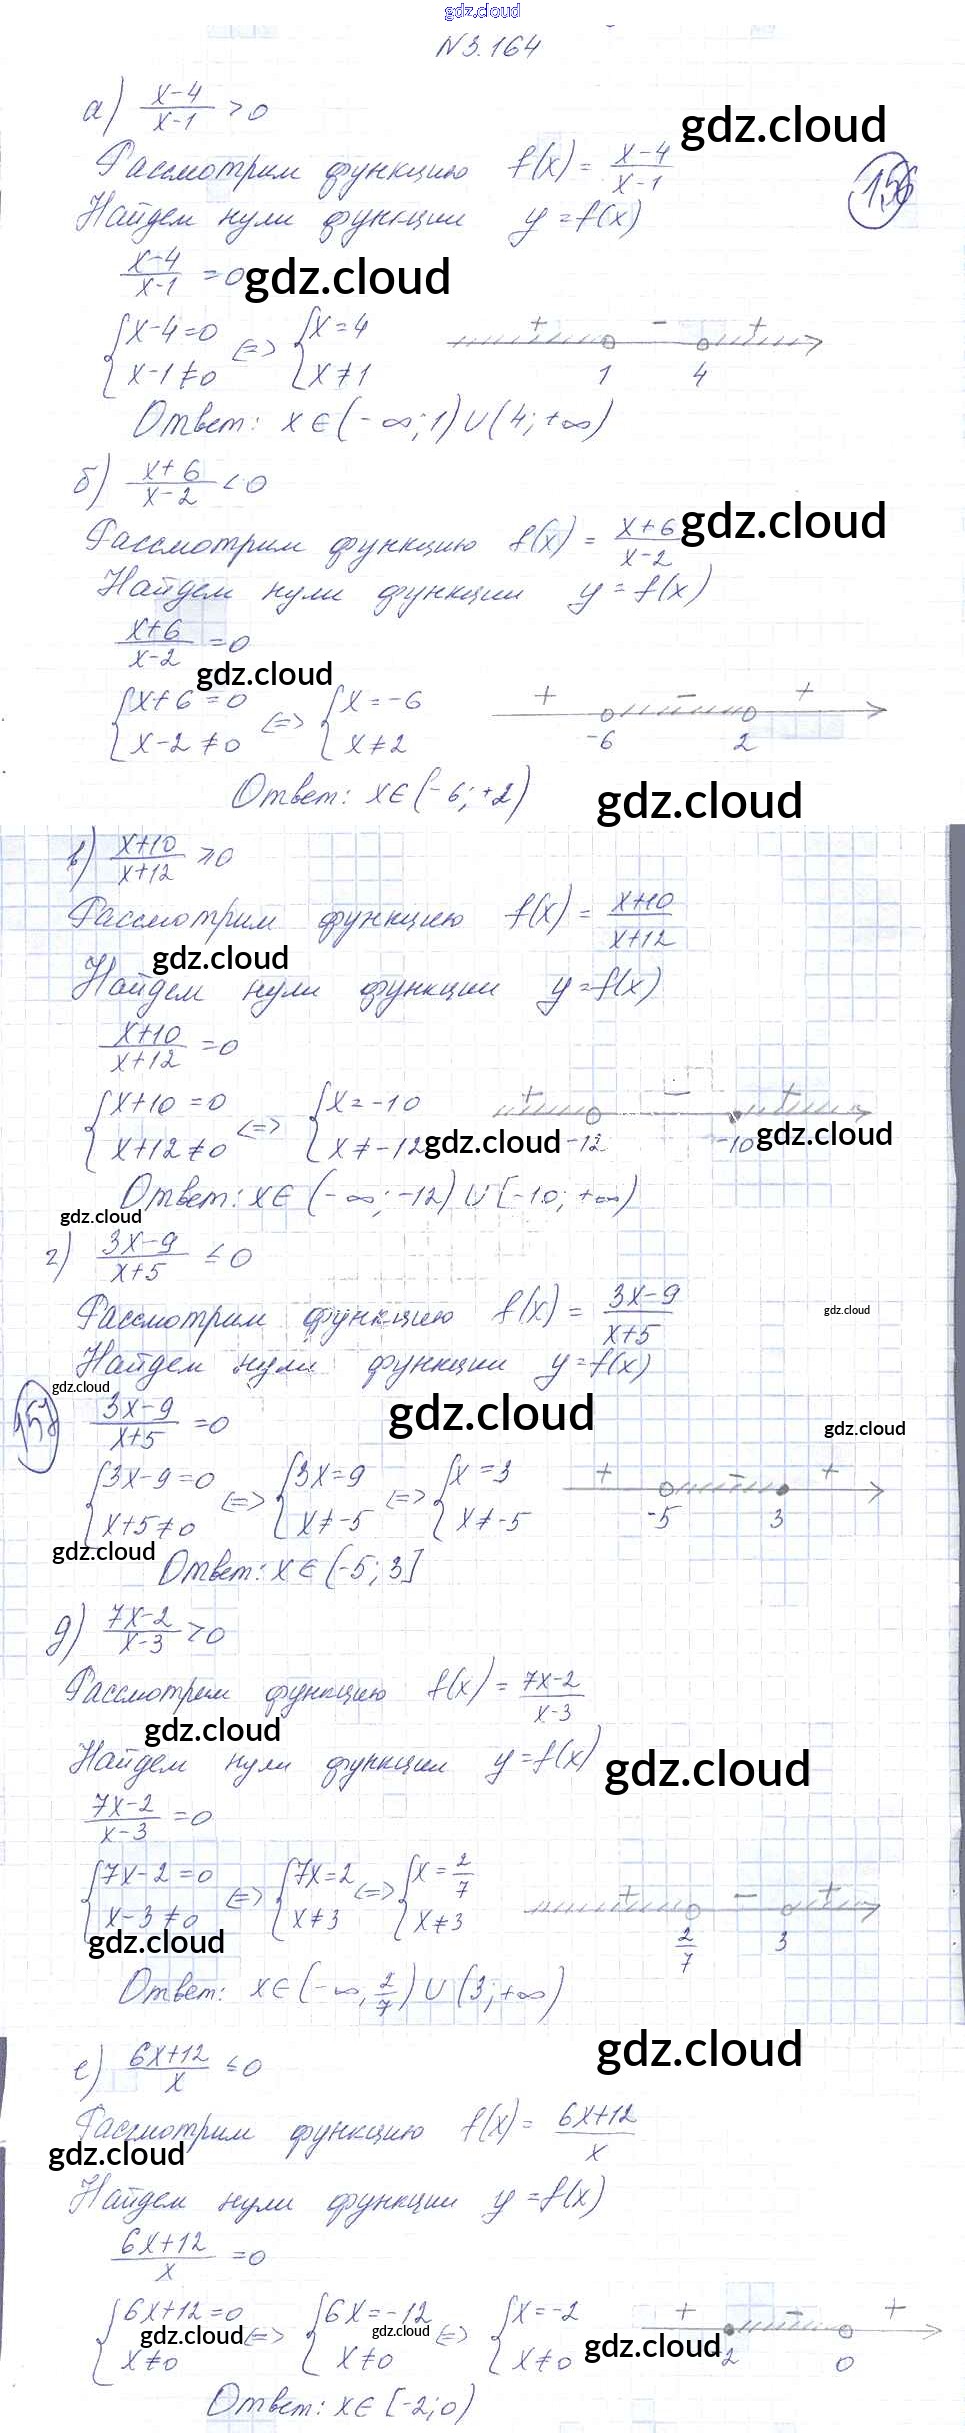 gdz.cloud
N 3.164
а) (x-4)/(x-1) > 0
gdz.cloud
Рассмотрим функцию f(x) = (x-4)/(x-1)
156
Найдем нули функции y = f(x)
(x-4)/(x-1) = 0
gdz.cloud
{x-4=0 {x=4 + - +
{x-1≠0 <=> {x≠1 1 4
Ответ: x∈(-∞;1)∪(4;+∞)
б) (x+6)/(x-2) < 0
gdz.cloud
Рассмотрим функцию f(x) = (x+6)/(x-2)
Найдем нули функции y = f(x)
(x+6)/(x-2) = 0
gdz.cloud
{x+6=0 {x=-6 + - +
{x-2≠0 <=> {x≠2 -6 2
Ответ: x∈(-6;+2)
gdz.cloud
в) (x+10)/(x+12) ≥ 0
Рассмотрим функцию f(x) = (x+10)/(x+12)
gdz.cloud
Найдем нули функции y = f(x)
(x+10)/(x+12) = 0
{x+10=0 {x=-10 + - +
{x+12≠0 <=> {x≠-12 gdz.cloud -12 -10 gdz.cloud
Ответ: x∈(-∞;-12)∪[-10;+∞)
gdz.cloud
г) (3x-9)/(x+5) ≤ 0
Рассмотрим функцию f(x) = (3x-9)/(x+5)
gdz.cloud
Найдем нули функции y = f(x)
gdz.cloud
(3x-9)/(x+5) = 0
gdz.cloud
gdz.cloud
{3x-9=0 {3x=9 {x=3 + - +
{x+5≠0 <=> {x≠-5 <=> {x≠-5 -5 3
gdz.cloud
Ответ: x∈(-5;3]
д) (7x-2)/(x-3) > 0
Рассмотрем функцию f(x) = (7x-2)/(x-3)
gdz.cloud
Найдем нули функции y = f(x)
gdz.cloud
(7x-2)/(x-3) = 0
{7x-2=0 {7x=2 {x=2/7 + - +
{x-3≠0 <=> {x≠3 <=> {x≠3 2/7 3
gdz.cloud
Ответ: x∈(-∞,2/7)∪(3;+∞)
gdz.cloud
е) (6x+12)/x ≤ 0
Рассмотрим функцию f(x) = (6x+12)/x
gdz.cloud
Найдем нули функции y = f(x)
(6x+12)/x = 0
{6x+12=0 {6x=-12 {x=-2 + - +
gdz.cloud gdz.cloud gdz.cloud
{x≠0 <=> {x≠0 <=> {x≠0 2 0
Ответ: x∈[-2;0)